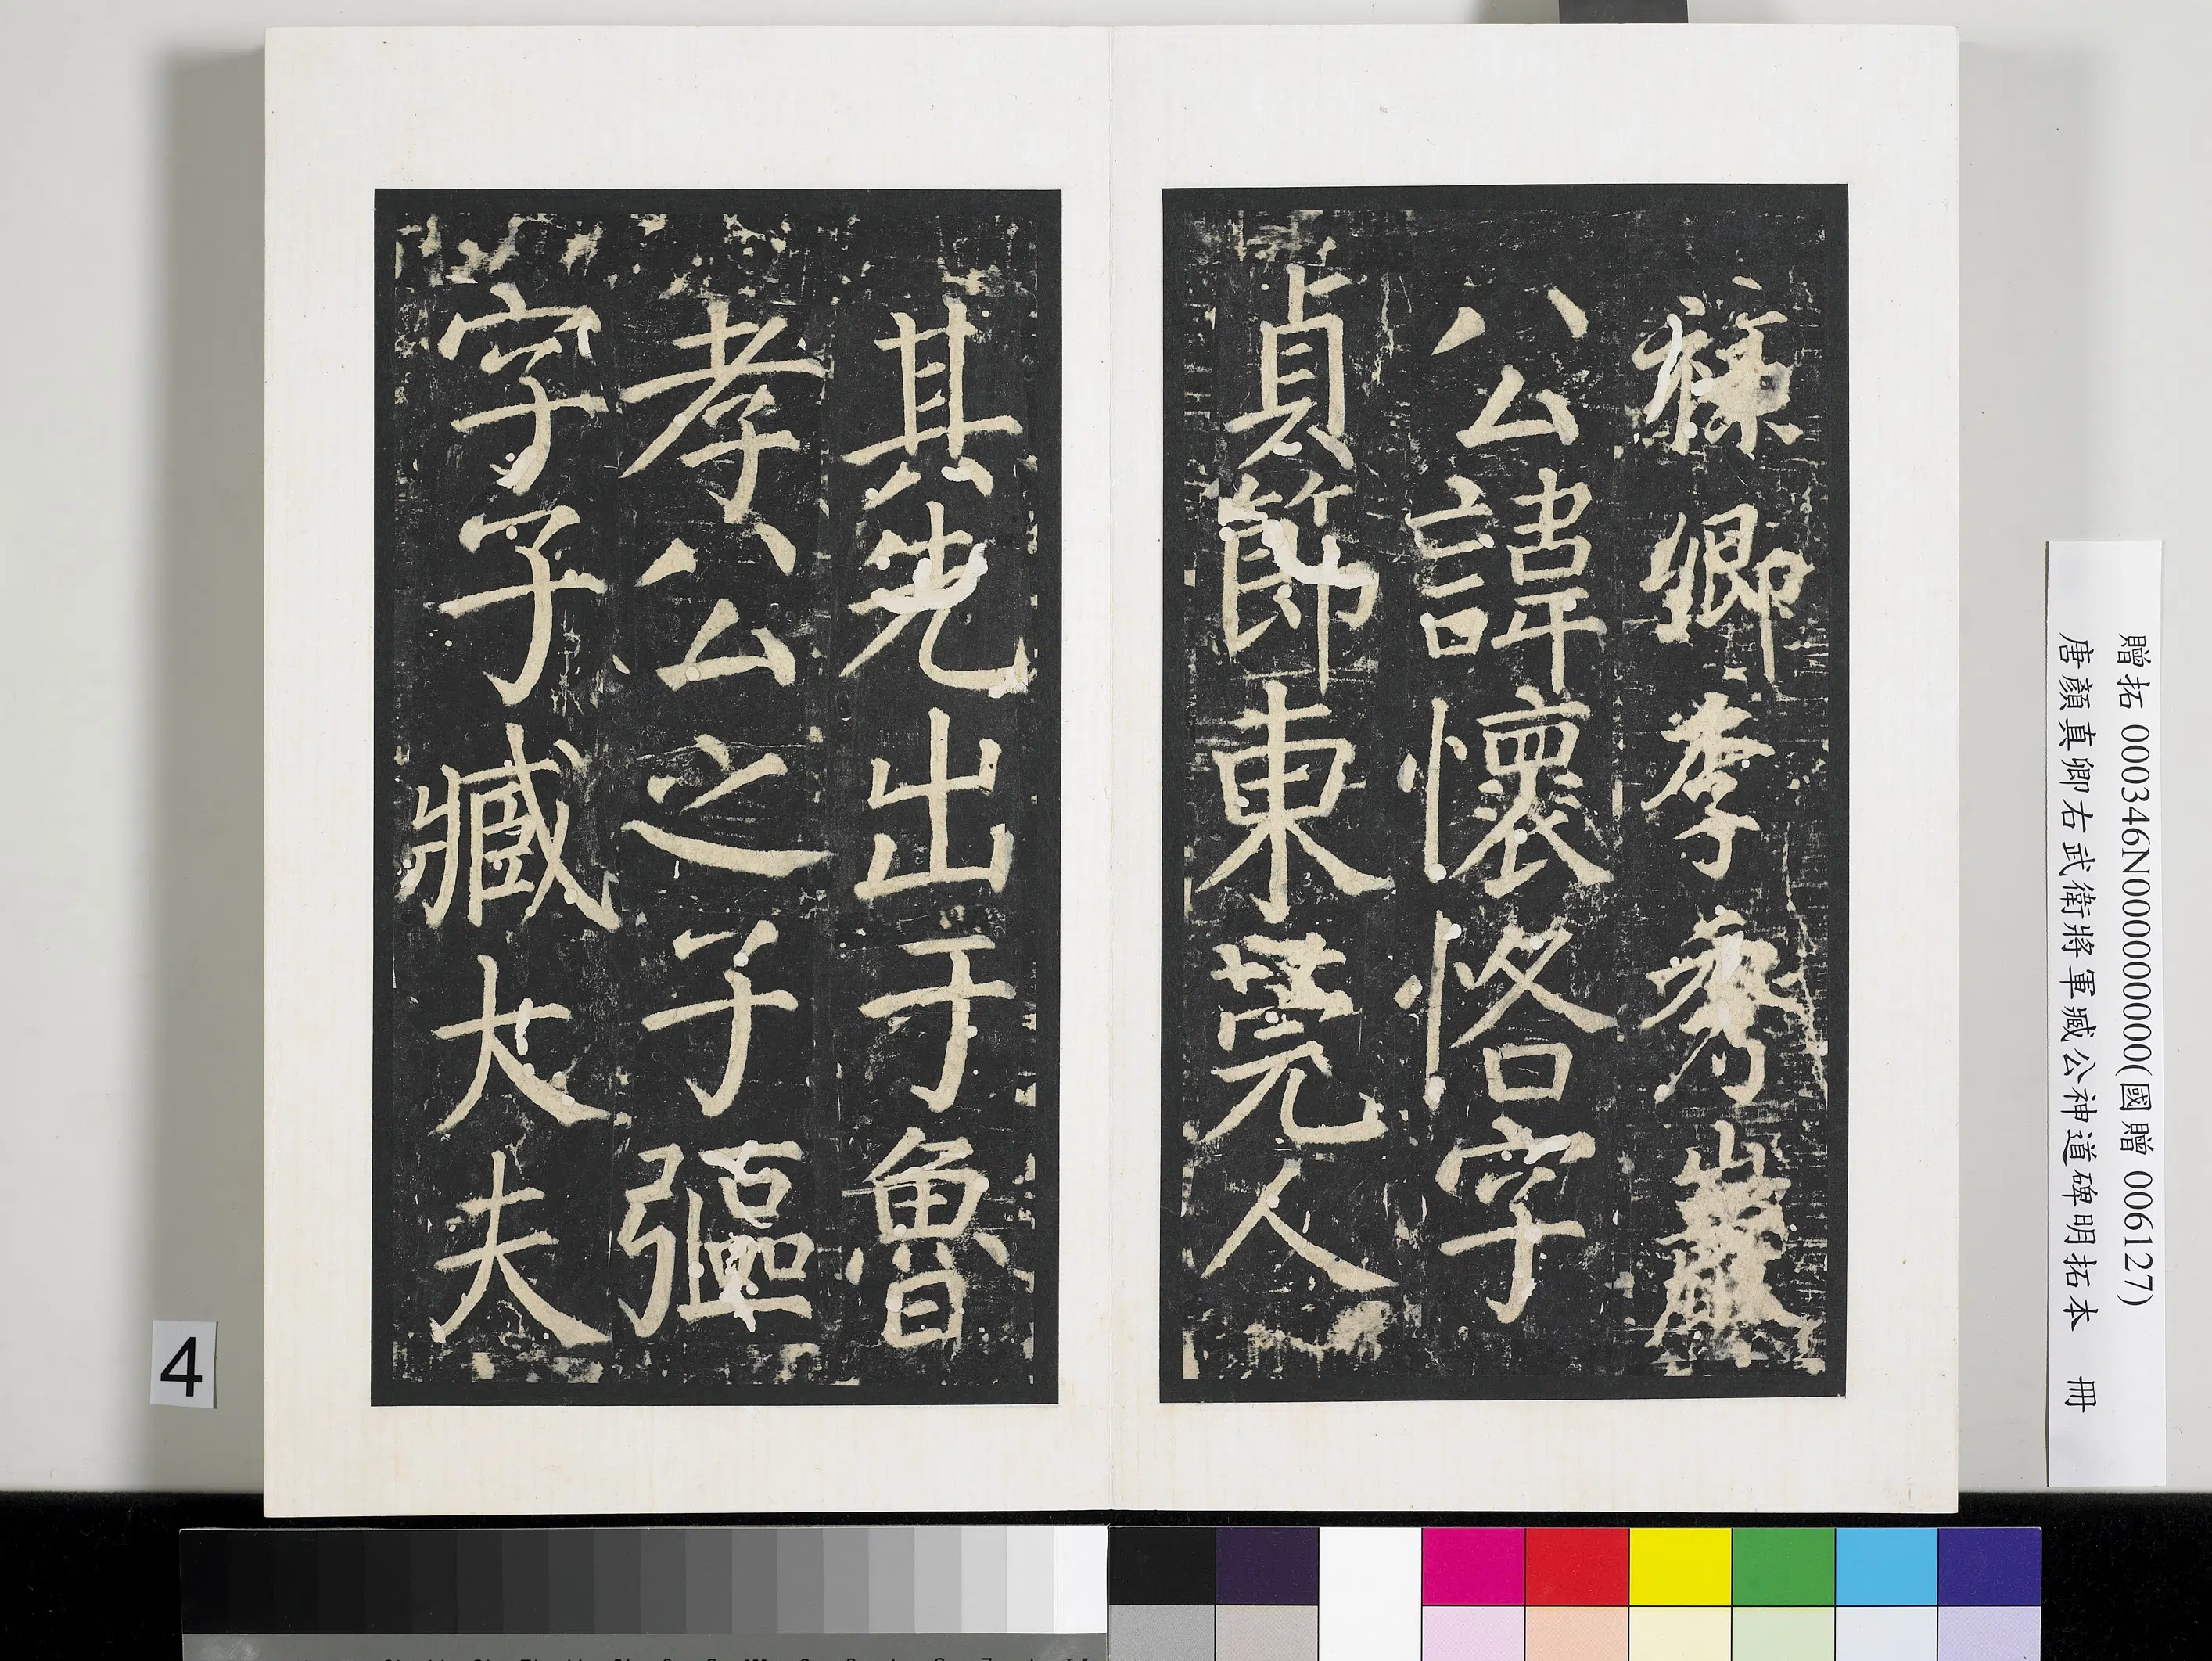 祿卿李秀巖
公諱懷恪字
貞節東莞人
其先出于魯
孝公之子彄
字子臧大夫
贈拓 000346N000000000(國贈 006127)
唐顏真卿右武衛將軍臧公神道碑明拓本 冊
4